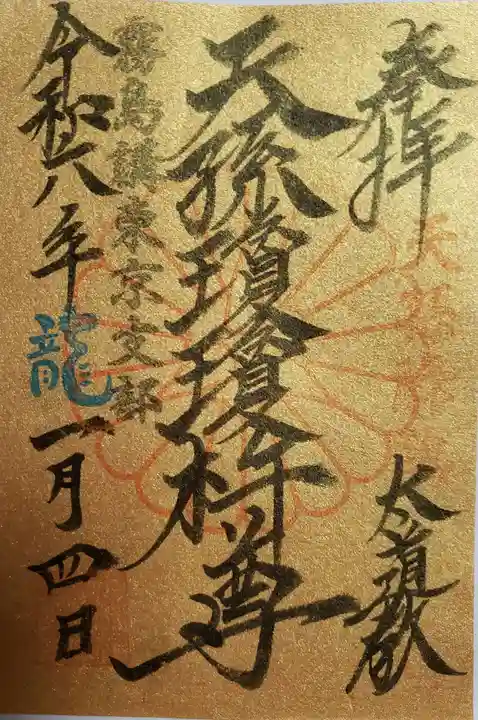 奉拝
太道教
天孫瓊瓊杵尊
霧島講東京支部
令和六年龍一月四日